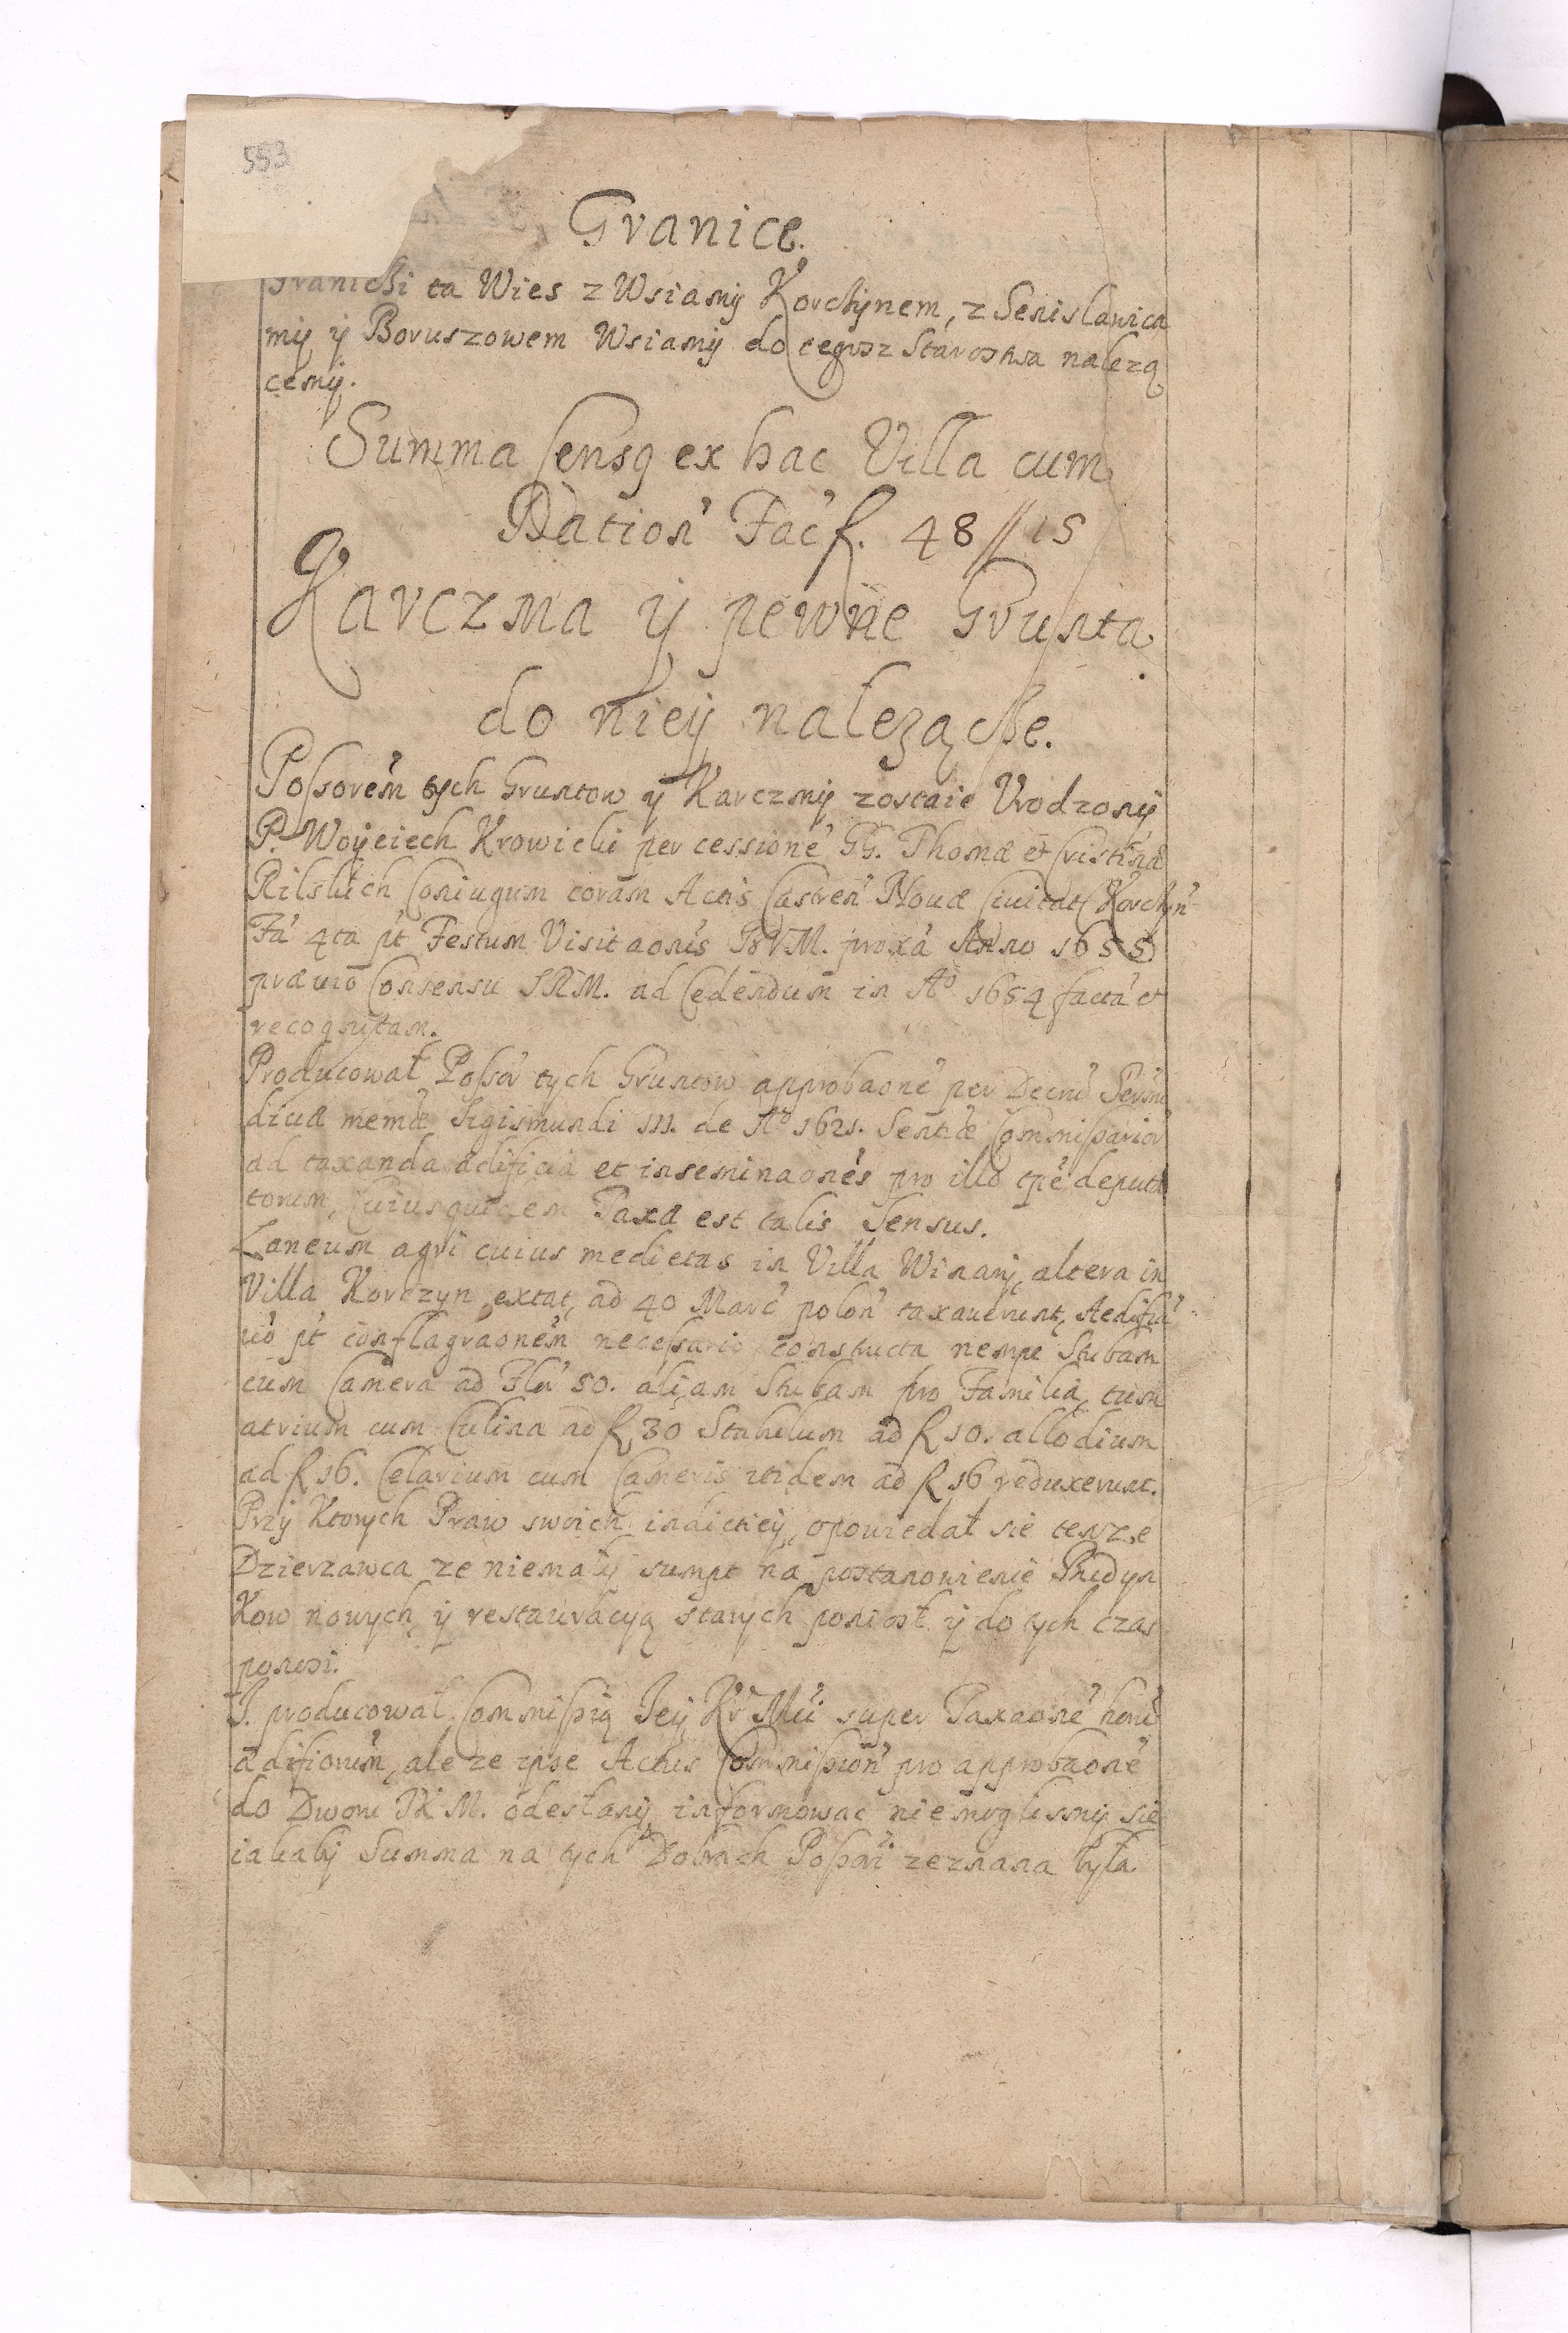 553
Granice.
Graniczi ta Wies z Wsiamÿ Korchÿnem, z Senislawica
mÿ ÿ Boruszowem Wsiamÿ do tegosz Starostwa nalezą
cemÿ.
Summa Census ex hac Villa cum
Dation' Fac' f. 48 // 15
Karczma ÿ pewne Grunta
do nieÿ nalezącße.
Poßorem tych Gruntow ÿ Karczmÿ zostaie Vrodzonÿ
P. Woÿciech Krowicki per cessione' GG. Thomæ et Cristinæ
Rilskich Coniugum coram Actis Castren' Nouæ Ciuitat Korchÿn'
Fa' 4ta pt' Festum Visitaonis BVM. proxa' Anno 1655
præuio Consensu SRM. ad Cedendum in Ao 1654 facta' et
recognitam.
Producował Poßor tych Gruntow approbaone' per Decre' Seren'
diuæ mem'æ Sigismundi III. de Ao 1621. Sent'æ Commißarior'
ad taxanda ædificia et inseminaones pro illo tpe' deputa
torum, Cuiusquidem Taxæ est talis Sensus.
Laneum agri cuius medietas in Villa Winarÿ, altera in
Villa Korczyn extat, ad 40 Marc' polon' taxauerunt, Aedifici'
uo' pt' conflagraonem necessario constructa nempe Stubam
cum Camera ad Flor' 50. aliam Stubam pro Familia, tum
atrium cum Culina ad f 30 Stabulum ad f 10. allodium
ad f 16. Celarium cum Cameris itidem ad f 16 reduxerunt.
Przÿ Ktorych Praw swoich indictieÿ, opowiedał sie tenze
Dzierzawca ze niemałÿ sumpt na postanowienie Budÿn
Kow nowych ÿ restauracÿą starych poniosł ÿ do tych czas
ponosi.
I. producował Commißią Jeÿ Kr Mci super Taxaone' horu'
ædificiorum, ale ze ipse Actus Commißion' pro approbaone'
do Dworu JKM. odesłanÿ informowac niemoglismÿ sie
iakabÿ Summa na tych Dobrach Poßori zeznana bÿła.